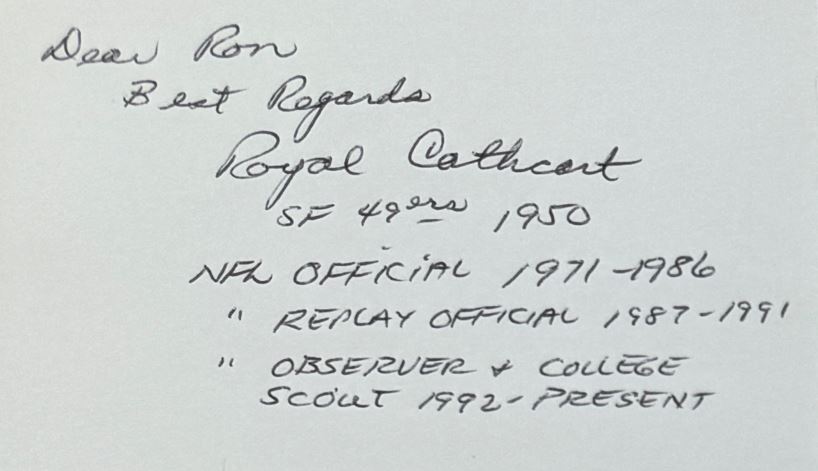 Dear Ron
Best Regards
Royal Cathcart
SF 49ers 1950
NFL OFFICIAL 1971-1986
" REPLAY OFFICIAL 1987-1991
" OBSERVER & COLLEGE
SCOUT 1992-PRESENT